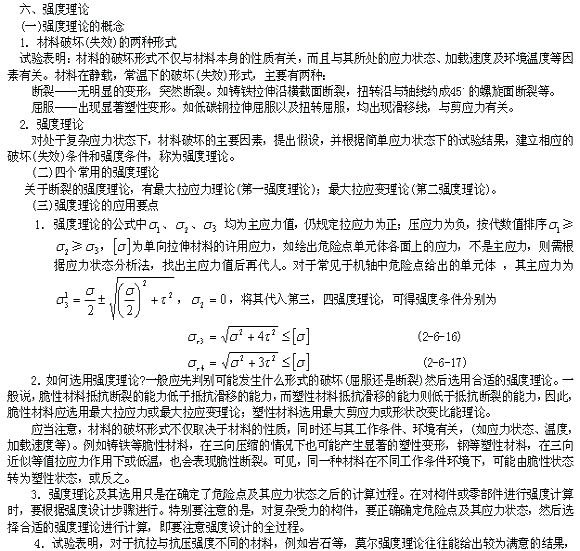 六、强度理论
(一)强度理论的概念
1. 材料破坏(失效)的两种形式
试验表明：材料的破坏形式不仅与材料本身的性质有关，而且与其所处的应力状态、加载速度及环境温度等因
素有关。材料在静载，常温下的破坏(失效)形式，主要有两种：
断裂——无明显的变形，突然断裂。如铸铁拉伸沿横截面断裂，扭转沿与轴线约成45°的螺旋面断裂等。
屈服——出现显著塑性变形。如低碳钢拉伸屈服以及扭转屈服，均出现滑移线，与剪应力有关。
2. 强度理论
对处于复杂应力状态下，材料破坏的主要因素，提出假设，并根据简单应力状态下的试验结果，建立相应的
破坏(失效)条件和强度条件，称为强度理论。
(二)四个常用的强度理论
关于断裂的强度理论，有最大拉应力理论(第一强度理论)；最大拉应变理论(第二强度理论)。
(三)强度理论的应用要点
1. 强度理论的公式中σ₁、σ₂、σ₃ 均为主应力值，仍规定拉应力为正；压应力为负，按代数值排序σ₁≥
σ₂≥σ₃，[σ]为单向拉伸材料的许用应力，如给出危险点单元体各面上的应力，不是主应力，则需根
据应力状态分析法，找出主应力值后再代人。对于常见于机轴中危险点给出的单元体 ，其主应力为
σ¹₃=σ/2±√((σ/2)²+τ²)，σ₂=0，将其代入第三，四强度理论，可得强度条件分别为
σr3=√(σ²+4τ²)≤[σ] (2-6-16)
σr4=√(σ²+3τ²)≤[σ] (2-6-17)
2．如何选用强度理论?一般应先判别可能发生什么形式的破坏(屈服还是断裂)然后选用合适的强度理论。一
般说，脆性材料抵抗断裂的能力低于抵抗滑移的能力，而塑性材料抵抗滑移的能力则低于抵抗断裂的能力，因此，
脆性材料应选用最大拉应力或最大拉应变理论；塑性材料选用最大剪应力或形状改变比能理论。
应当注意，材料的破坏形式不仅取决于材料的性质，同时还与其工作条件、环境有关，(如应力状态、温度，
加载速度等)。例如铸铁等脆性材料，在三向压缩的情况下也可能产生显著的塑性变形，钢等塑性材料，在三向
近似等值拉应力作用下或低温，也会表现脆性断裂。可见，同一种材料在不同工作条件环境下，可能由脆性状态
转为塑性状态，或反之。
3．强度理论及其选用只是在确定了危险点及其应力状态之后的计算过程。在对构件或零部件进行强度计算
时，要根据强度设计步骤进行。特别要注意的是，对复杂受力的构件，要正确确定危险点及其应力状态，然后选
择合适的强度理论进行计算，即要注意强度设计的全过程。
4．试验表明，对于抗拉与抗压强度不同的材料，例如岩石等，莫尔强度理论往往能给出较为满意的结果，